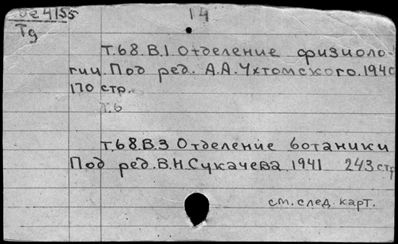 14
4155
Тд
т.68.В.1 Отделение физиоло-
гии. Под ред. А.А.Ухтомского. 1940
170 стр.
т.68.В.3 Отделение ботаники
Под ред. В.Н.Сукачева 1941 243 стр
см. след. карт.